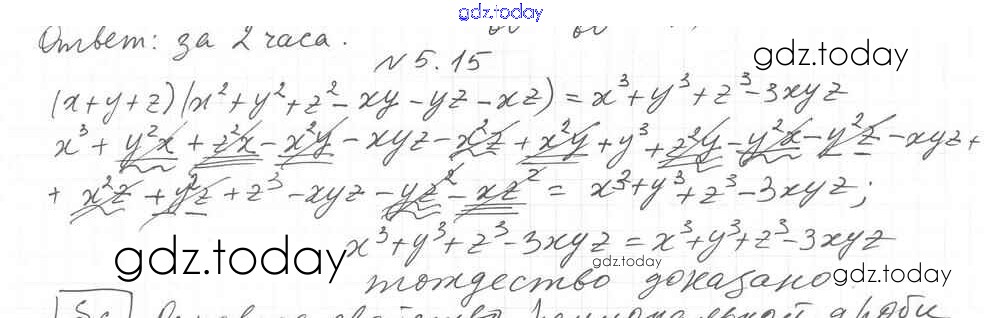 gdz.today
Ответ: за 2 часа.
gdz.today
N 5.15
(x+y+z)(x²+y²+z²-xy-yz-xz)=x³+y³+z³-3xyz
x³+y²x+z²x-x²y-xyz-x²z+x²y+y³+z²y-y²x-y²z-xyz+
+x²z+y²z+z³-xyz-yz²-xz²= x³+y³+z³-3xyz;
gdz.today x³+y³+z³-3xyz=x³+y³+z³-3xyz
gdz.today
тождество доказано gdz.today